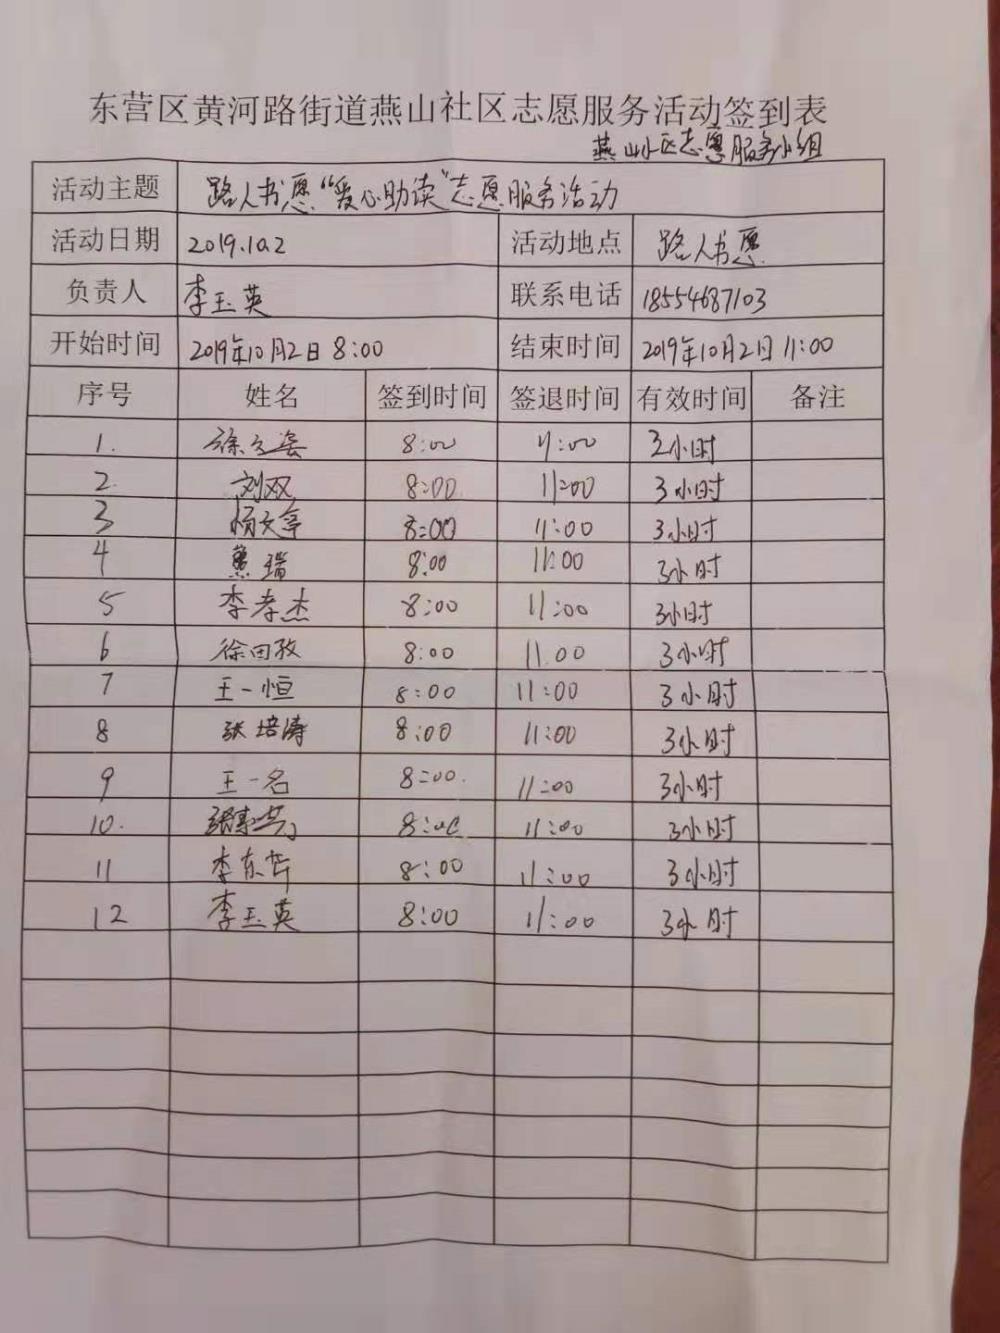 东营区黄河路街道燕山社区志愿服务活动签到表
燕山小区志愿服务小组
活动主题 路人书愿“爱心助读”志愿服务活动
活动日期 2019.10.2 活动地点 路人书愿
负责人 李玉英 联系电话 18554687103
开始时间 2019年10月2日 8:00 结束时间 2019年10月2日 11:00
序号 姓名 签到时间 签退时间 有效时间 备注
1. 8:00 11:00 3小时
2. 刘双 8:00 11:00 3小时
3 8:00 11:00 3小时
4 瑞 8:00 11:00 3小时
5 李孝杰 8:00 11:00 3小时
6 徐田孜 8:00 11:00 3小时
7 王一恒 8:00 11:00 3小时
8 张培涛 8:00 11:00 3小时
9 王一名 8:00. 11:00 3小时
10. 8:00 11:00 3小时
11 李东哲 8:00 11:00 3小时
12 李玉英 8:00 11:00 3小时